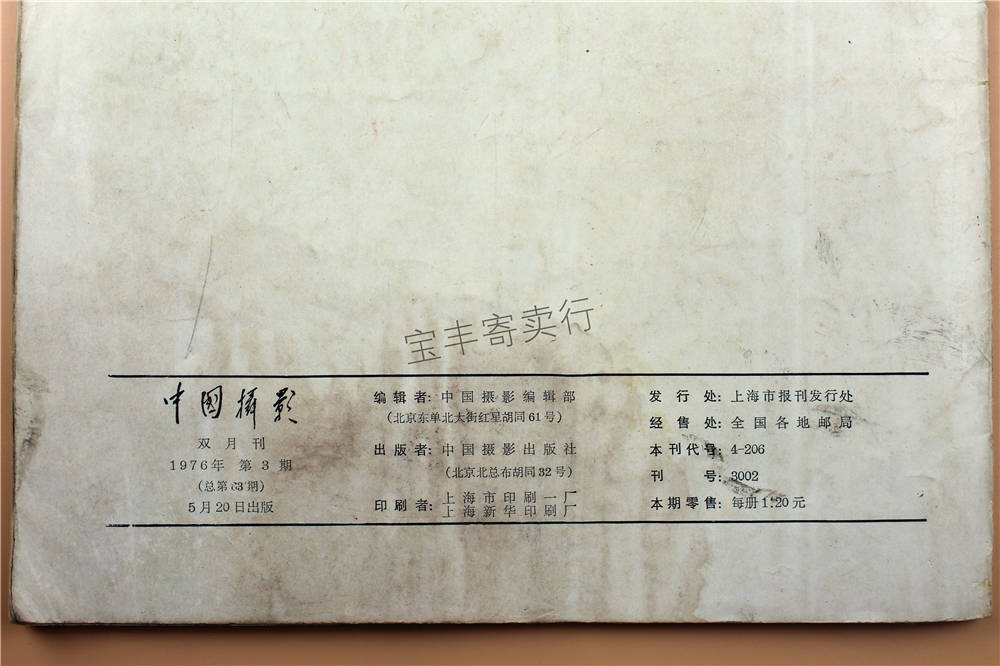 宝丰寄卖行
中国攝影
双月刊
1976年 第3期
(总第63期)
5月20日出版
编辑者：中国摄影编辑部
(北京东单北大街红星胡同61号)
出版者：中国摄影出版社
(北京北总布胡同32号)
印刷者：上海市印刷一厂
上海新华印刷厂
发行处：上海市报刊发行处
经售处：全国各地邮局
本刊代号：4-206
刊号：3002
本期零售：每册1.20元